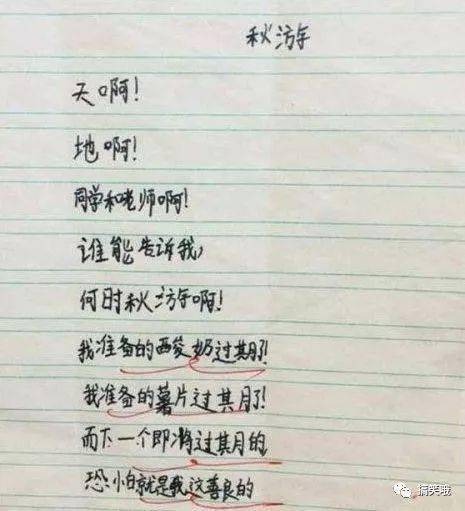 秋游
天啊!
地啊!
同学和老师啊!
谁能告诉我,
何时秋游啊!
我准备的酸奶过期了!
我准备的薯片过期了!
而下一个即将过期的,
恐怕就是我这善良的
搞笑哦